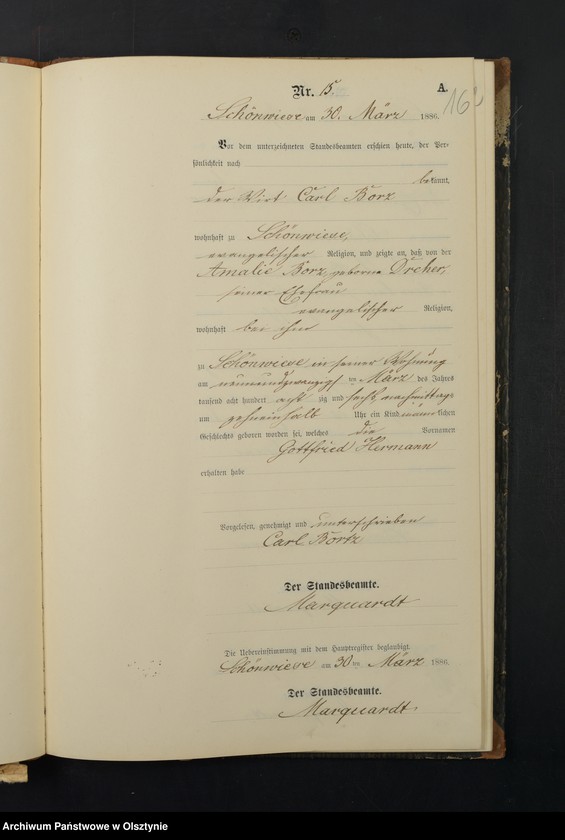 Nr. 15. A.
16
Schönwiese am 30. März 1886.
Vor dem unterzeichneten Standesbeamten erschien heute, der Per-
sönlichkeit nach
bekannt,
der Wirt Carl Borz
wohnhaft zu Schönwiese,
evangelischer Religion, und zeigte an, daß von der
Amalie Borz, geborne Dreher,
seiner Ehefrau
evangelischer Religion,
wohnhaft bei ihm
zu Schönwiese in seiner Wohnung
am neunundzwanzigsten März des Jahres
tausend acht hundert achtzig und sechs nachmittags
um zehneinhalb Uhr ein Kind männlichen
Geschlechts geboren worden sei, welches die Vornamen
Gottfried Hermann
erhalten habe
Vorgelesen, genehmigt und unterschrieben
Carl Bortz
Der Standesbeamte.
Marquardt
Die Uebereinstimmung mit dem Hauptregister beglaubigt.
Schönwiese am 30ten März 1886.
Der Standesbeamte.
Marquardt.
Archiwum Państwowe w Olsztynie